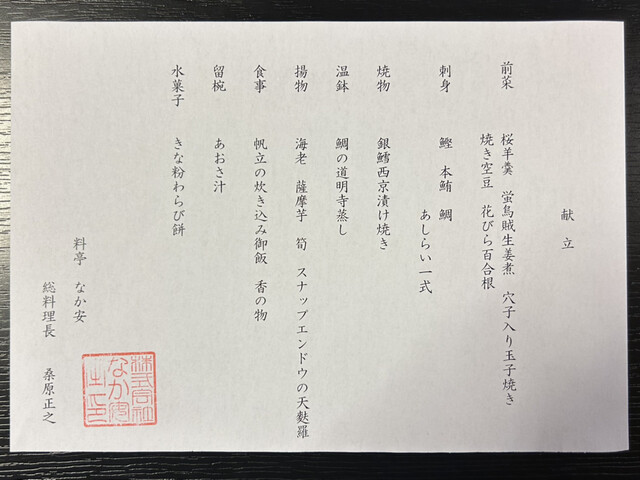 献立
前菜　桜羊羹　蛍烏賊生姜煮　穴子入り玉子焼き
焼き空豆　花びら百合根
刺身　鰹　本鮪　鯛
あしらい一式
焼物　銀鱈西京漬け焼き
温鉢　鯛の道明寺蒸し
揚物　海老　薩摩芋　筍　スナップエンドウの天麩羅
食事　帆立の炊き込み御飯　香の物
留椀　あおさ汁
水菓子　きな粉わらび餅
料亭　なか安
総料理長　桑原正之
株式会社
なか安
之印